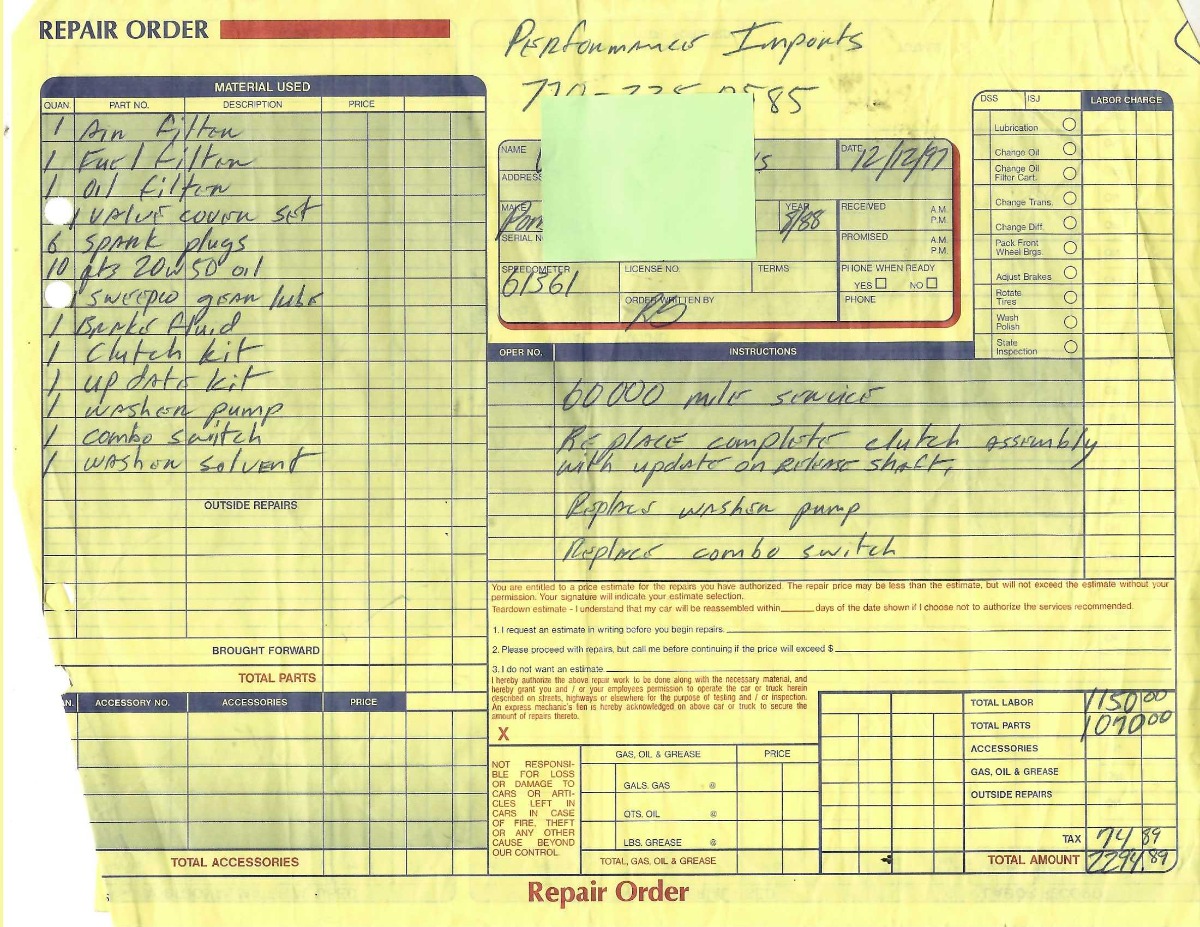 REPAIR ORDER
Performance Imports
MATERIAL USED
QUAN. PART NO. DESCRIPTION PRICE
1 Air filter
1 Fuel filter
1 Oil filter
1 Valve cover set
6 spark plugs
10 qts 20w50 oil
1 sweepco gear lube
1 Brake fluid
1 Clutch kit
1 update kit
1 washer pump
1 combo switch
1 washer solvent
OUTSIDE REPAIRS
BROUGHT FORWARD
TOTAL PARTS
N. ACCESSORY NO. ACCESSORIES PRICE
TOTAL ACCESSORIES
NAME
DATE 12/12/97
ADDRES
MAKE
YEAR 8/88
RECEIVED A.M. P.M.
SERIAL N
PROMISED A.M. P.M.
SPEEDOMETER 61361
LICENSE NO.
TERMS
PHONE WHEN READY
YES NO
ORDER WRITTEN BY
PHONE
DSS ISJ LABOR CHARGE
Lubrication
Change Oil
Change Oil
Filter Cart.
Change Trans.
Change Diff.
Pack Front
Wheel Brgs.
Adjust Brakes
Rotate
Tires
Wash
Polish
State
Inspection
OPER NO. INSTRUCTIONS
60000 mile service
Replace complete clutch assembly
with update on release shaft.
Replace washer pump
Replace combo switch
You are entitled to a price estimate for the repairs you have authorized. The repair price may be less than the estimate, but will not exceed the estimate without your
permission. Your signature will indicate your estimate selection.
Teardown estimate - I understand that my car will be reassembled within ______ days of the date shown if I choose not to authorize the services recommended.
1. I request an estimate in writing before you begin repairs.
2. Please proceed with repairs, but call me before continuing if the price will exceed $
3. I do not want an estimate
I hereby authorize the above repair work to be done along with the necessary material, and
hereby grant you and / or your employees permission to operate the car or truck herein
described on streets, highways or elsewhere for the purpose of testing and / or inspection.
An express mechanic's lien is hereby acknowledged on above car or truck to secure the
amount of repairs thereto.
X
NOT RESPONSI-
BLE FOR LOSS
OR DAMAGE TO
CARS OR ARTI-
CLES LEFT IN
CARS IN CASE
OF FIRE, THEFT
OR ANY OTHER
CAUSE BEYOND
OUR CONTROL.
GAS, OIL & GREASE PRICE
GALS. GAS @
QTS. OIL @
LBS. GREASE @
TOTAL, GAS, OIL & GREASE
TOTAL LABOR 1150 00
TOTAL PARTS 1070 00
ACCESSORIES
GAS, OIL & GREASE
OUTSIDE REPAIRS
TAX 74 89
TOTAL AMOUNT 2294.89
Repair Order